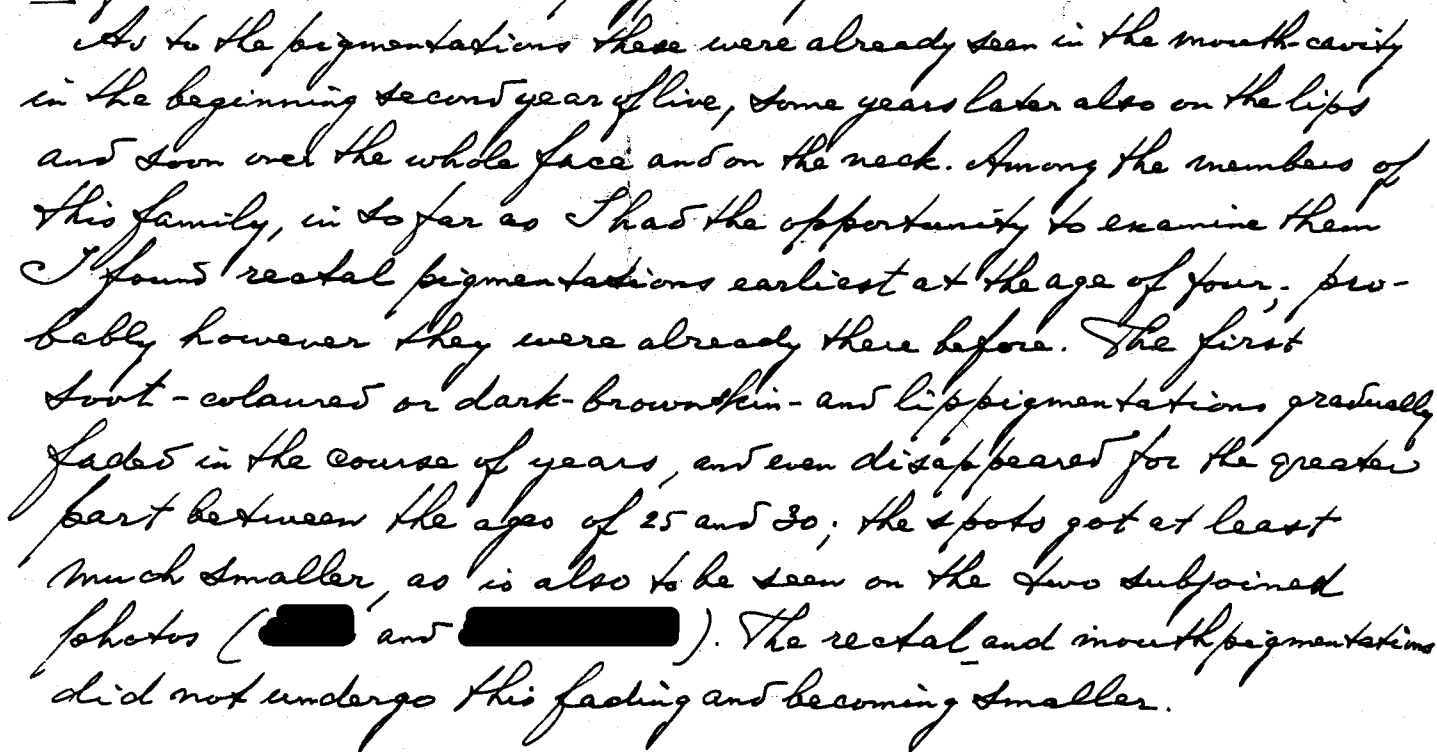 As to the pigmentations these were already seen in the mouth-cavity
in the beginning second year of live, some years later also on the lips
and soon over the whole face and on the neck. Among the members of
this family, in so far as I had the opportunity to examine them
I found rectal pigmentations earliest at the age of four; pro-
bably however they were already there before. The first
soot-coloured or dark-brown skin- and lippigmentations gradually
faded in the course of years, and even disappeared for the greater
part between the ages of 25 and 30; the spots got at least
much smaller, as is also to be seen on the two subjoined
photos ( and ). The rectal and mouthpigmentations
did not undergo this fading and becoming smaller.